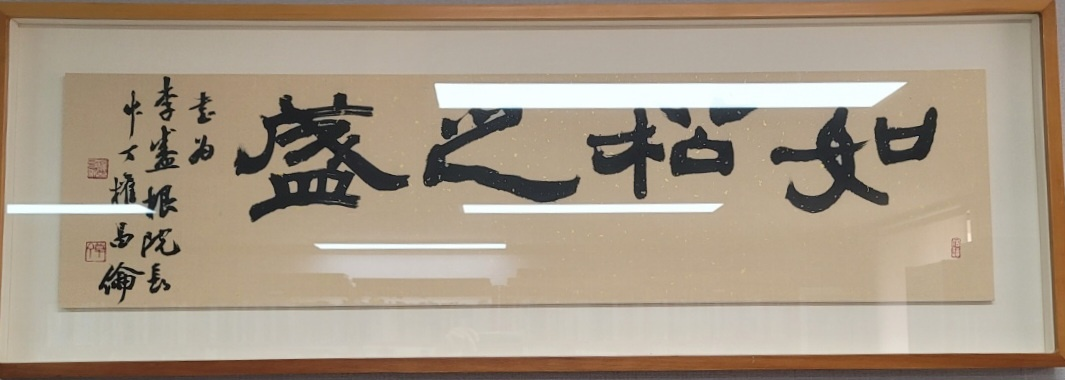 如松之盛
書為
李盛根院長
艸丁權昌倫